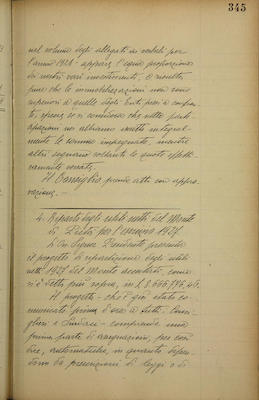 345
nel volume degli allegati ai verbali per
l'anno 1928 - appare l'equa proporzione
dei nostri vari investimenti. E risulta
pure che le immobilizzazioni non sono
superiori a quelle degli Enti posti a confron-
to, specie se si considera che nelle parteci-
pazioni noi abbiamo scritto integral-
mente le somme impegnate, mentre
altri segnano soltanto le quote effetti-
vamente versate.
Il Consiglio prende atto con appro-
vazione. -
4. Riparto degli utili netti del Monte
di Pietà per l'esercizio 1927.
L'On. Signor Presidente presenta
il progetto di ripartizione degli utili
netti 1927 del Monte ascendenti, come
si è detto più sopra, in £ 8.666.775,46.
Il progetto - che è già stato co-
municato prima d'ora a tutti i Consi-
glieri e Sindaci - comprende una
prima parte di assegnazioni, per così
dire, automatiche, in quanto dipen-
dono da prescrizioni di legge o di